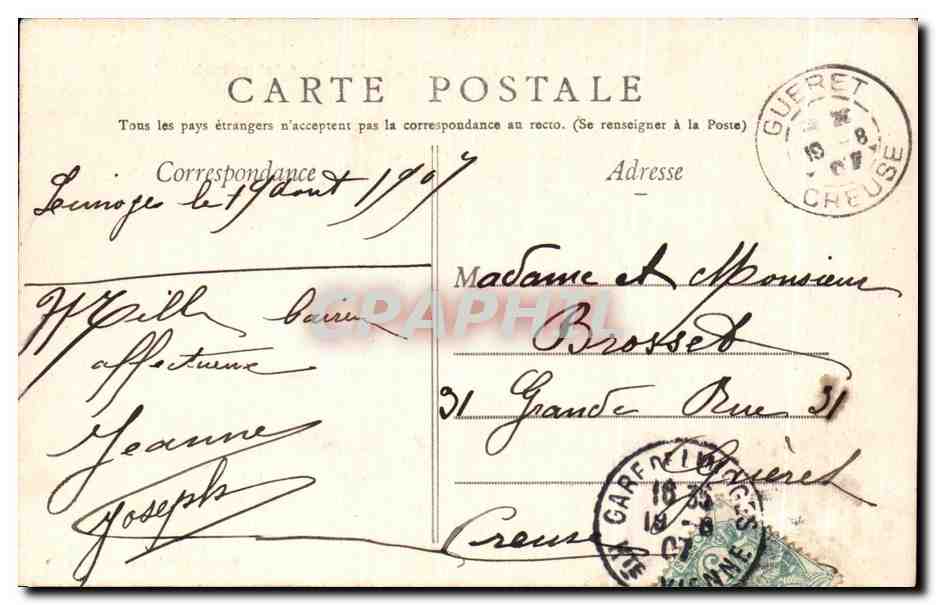 CARTE POSTALE
Tous les pays étrangers n'acceptent pas la correspondance au recto. (Se renseigner à la Poste)
Correspondance
Limoges le 19 aout 1907
Mille baisers
affectueux
Jeanne
Joseph
Adresse
Madame et Monsieur
Brosset
31 Grande Rue 31
Guéret
Creuse
GUERET
19 -8
07
CREUSE
GARE DE LIMOGES
18 35
19 - 8
07
HTE VIENNE
CPAPHIL